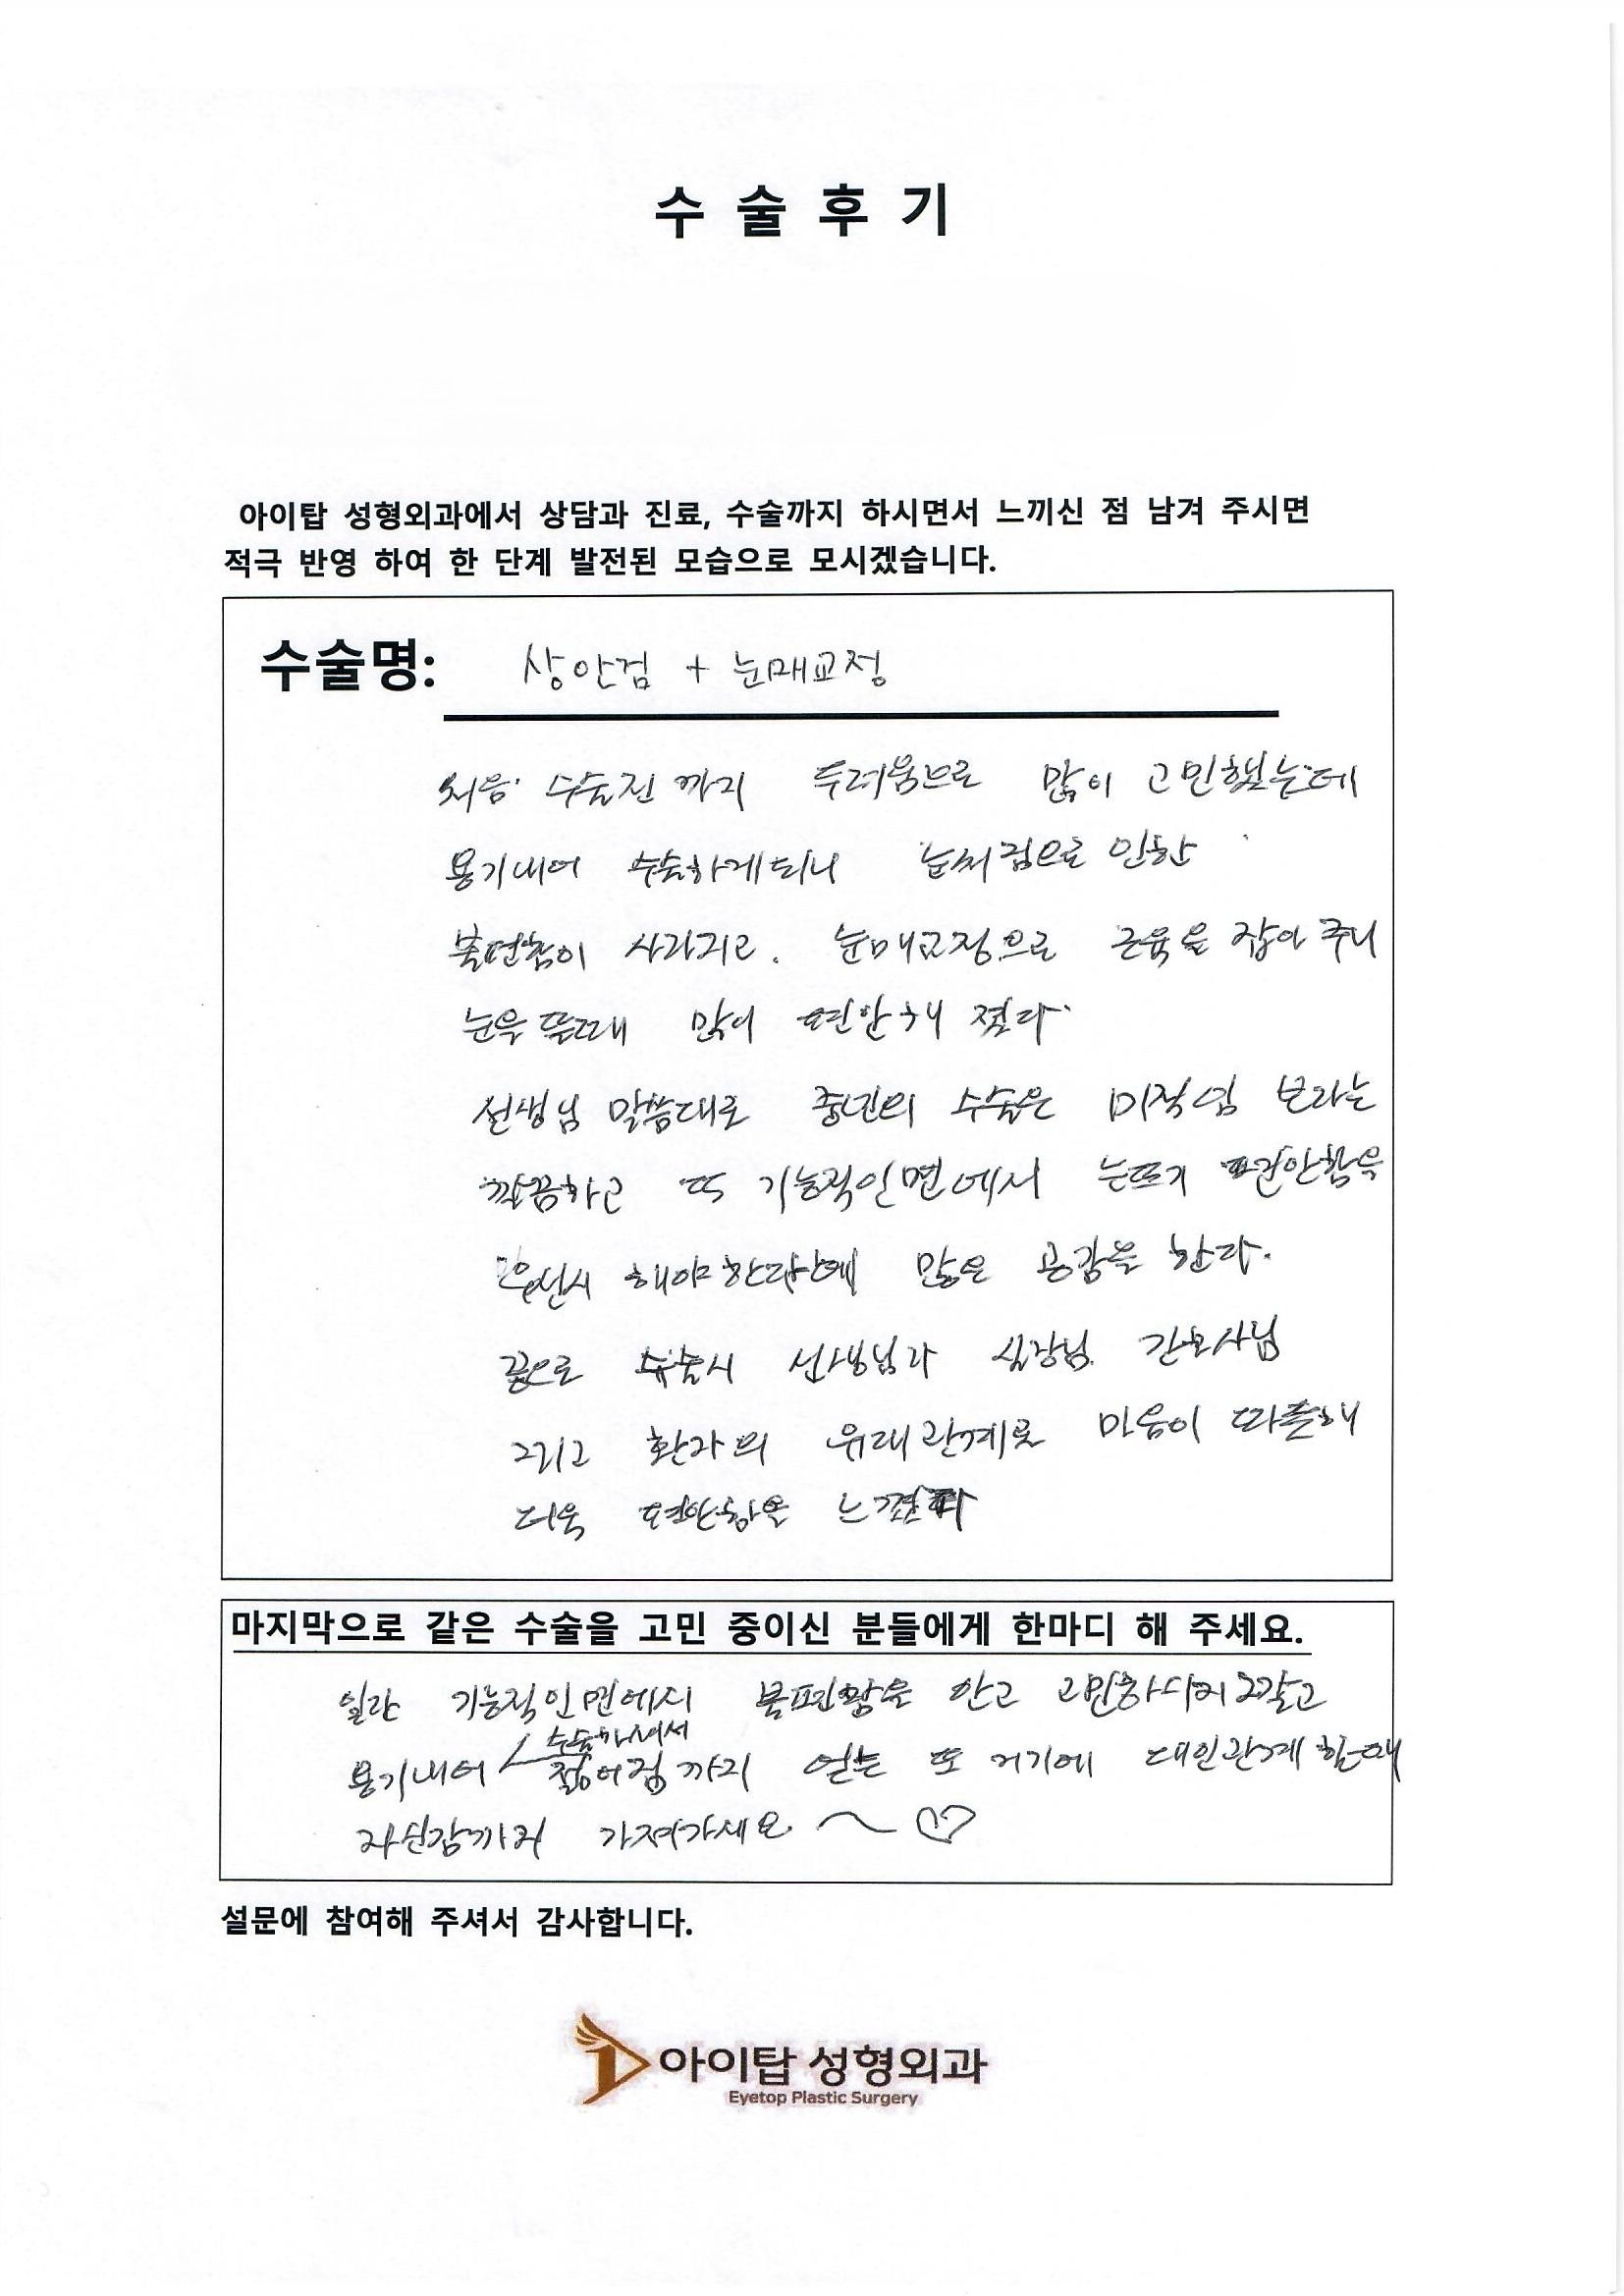 수 술 후 기
아이탑 성형외과에서 상담과 진료, 수술까지 하시면서 느끼신 점 남겨 주시면
적극 반영 하여 한 단계 발전된 모습으로 모시겠습니다.
수술명: 상안검 + 눈매교정
처음 수술전 까지 두려움으로 많이 고민했는데
용기내어 수술하게되니 눈처짐으로 인한
불편함이 사라지고. 눈매교정으로 근육을 잡아 주니
눈을 뜰때 많이 편안해 졌다
선생님 말씀대로 중년의 수술은 미적임 보다는
깔끔하고 또 기능적인면에서 눈뜨기 편안함을
우선시 해야한다는에 많은 공감을 한다.
끝으로 수술시 선생님과 실장님 간호사님
그리고 환자의 유대관계로 마음이 따뜻해
더욱 편안함을 느꼈다
마지막으로 같은 수술을 고민 중이신 분들에게 한마디 해 주세요.
일단 기능적인면에서 불편함을 안고 고민하시지말고
수술하셔서
용기내어 젊어짐 까지 얻는 또 거기에 대인관계 할때
자신감까지 가져가세요 ~ ♡
설문에 참여해 주셔서 감사합니다.
아이탑 성형외과
Eyetop Plastic Surgery